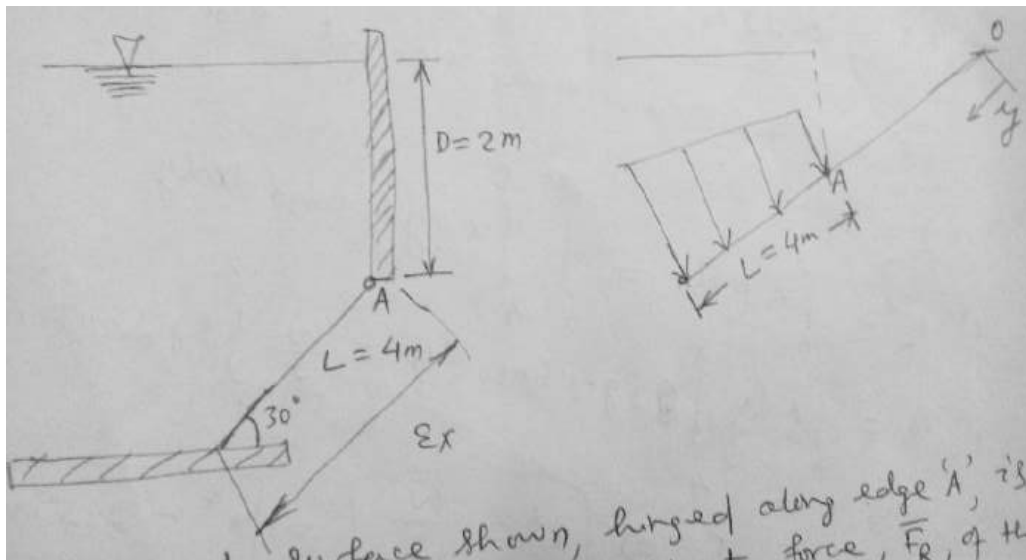 D = 2m
A
L = 4m
30°
Ex
O
y
A
L = 4m
surface shown, hinged along edge 'A', is
force, F̅R, of th